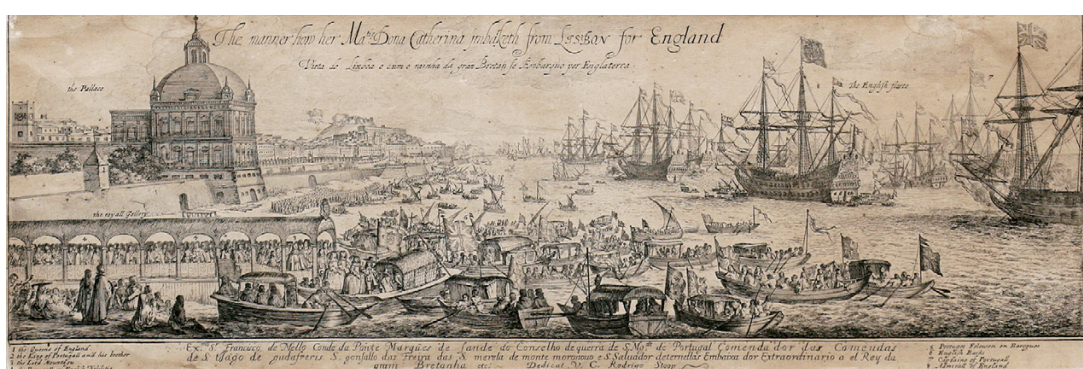 The manner how her Ma.tie Dona Catherina imbarketh from LISBON for England
Vista de Lixboa e cum o rainha da gran Bretan se Enbarquo per Englaterra
the Pallace
the English fleete
7
the royall Gallery
1 the Queene of England
2 the King of Portugall and his brother
3 the Lord
Ex. Sr. Francisco de Mello Conde da Ponte Marques de Sande do Conselho de guerra de S. Mg.de de Portugal Comendador das Comendas
de S. Tiago de S. gonsallo das Freira das S. merela de monte e S. Salvador Embaixador Extraordinario a el Rey da
gran Bretanha etc. Dedicat V. C. Rodrigo Stoop
6 English
7 Captaine of Portugal
8 Admirall of England